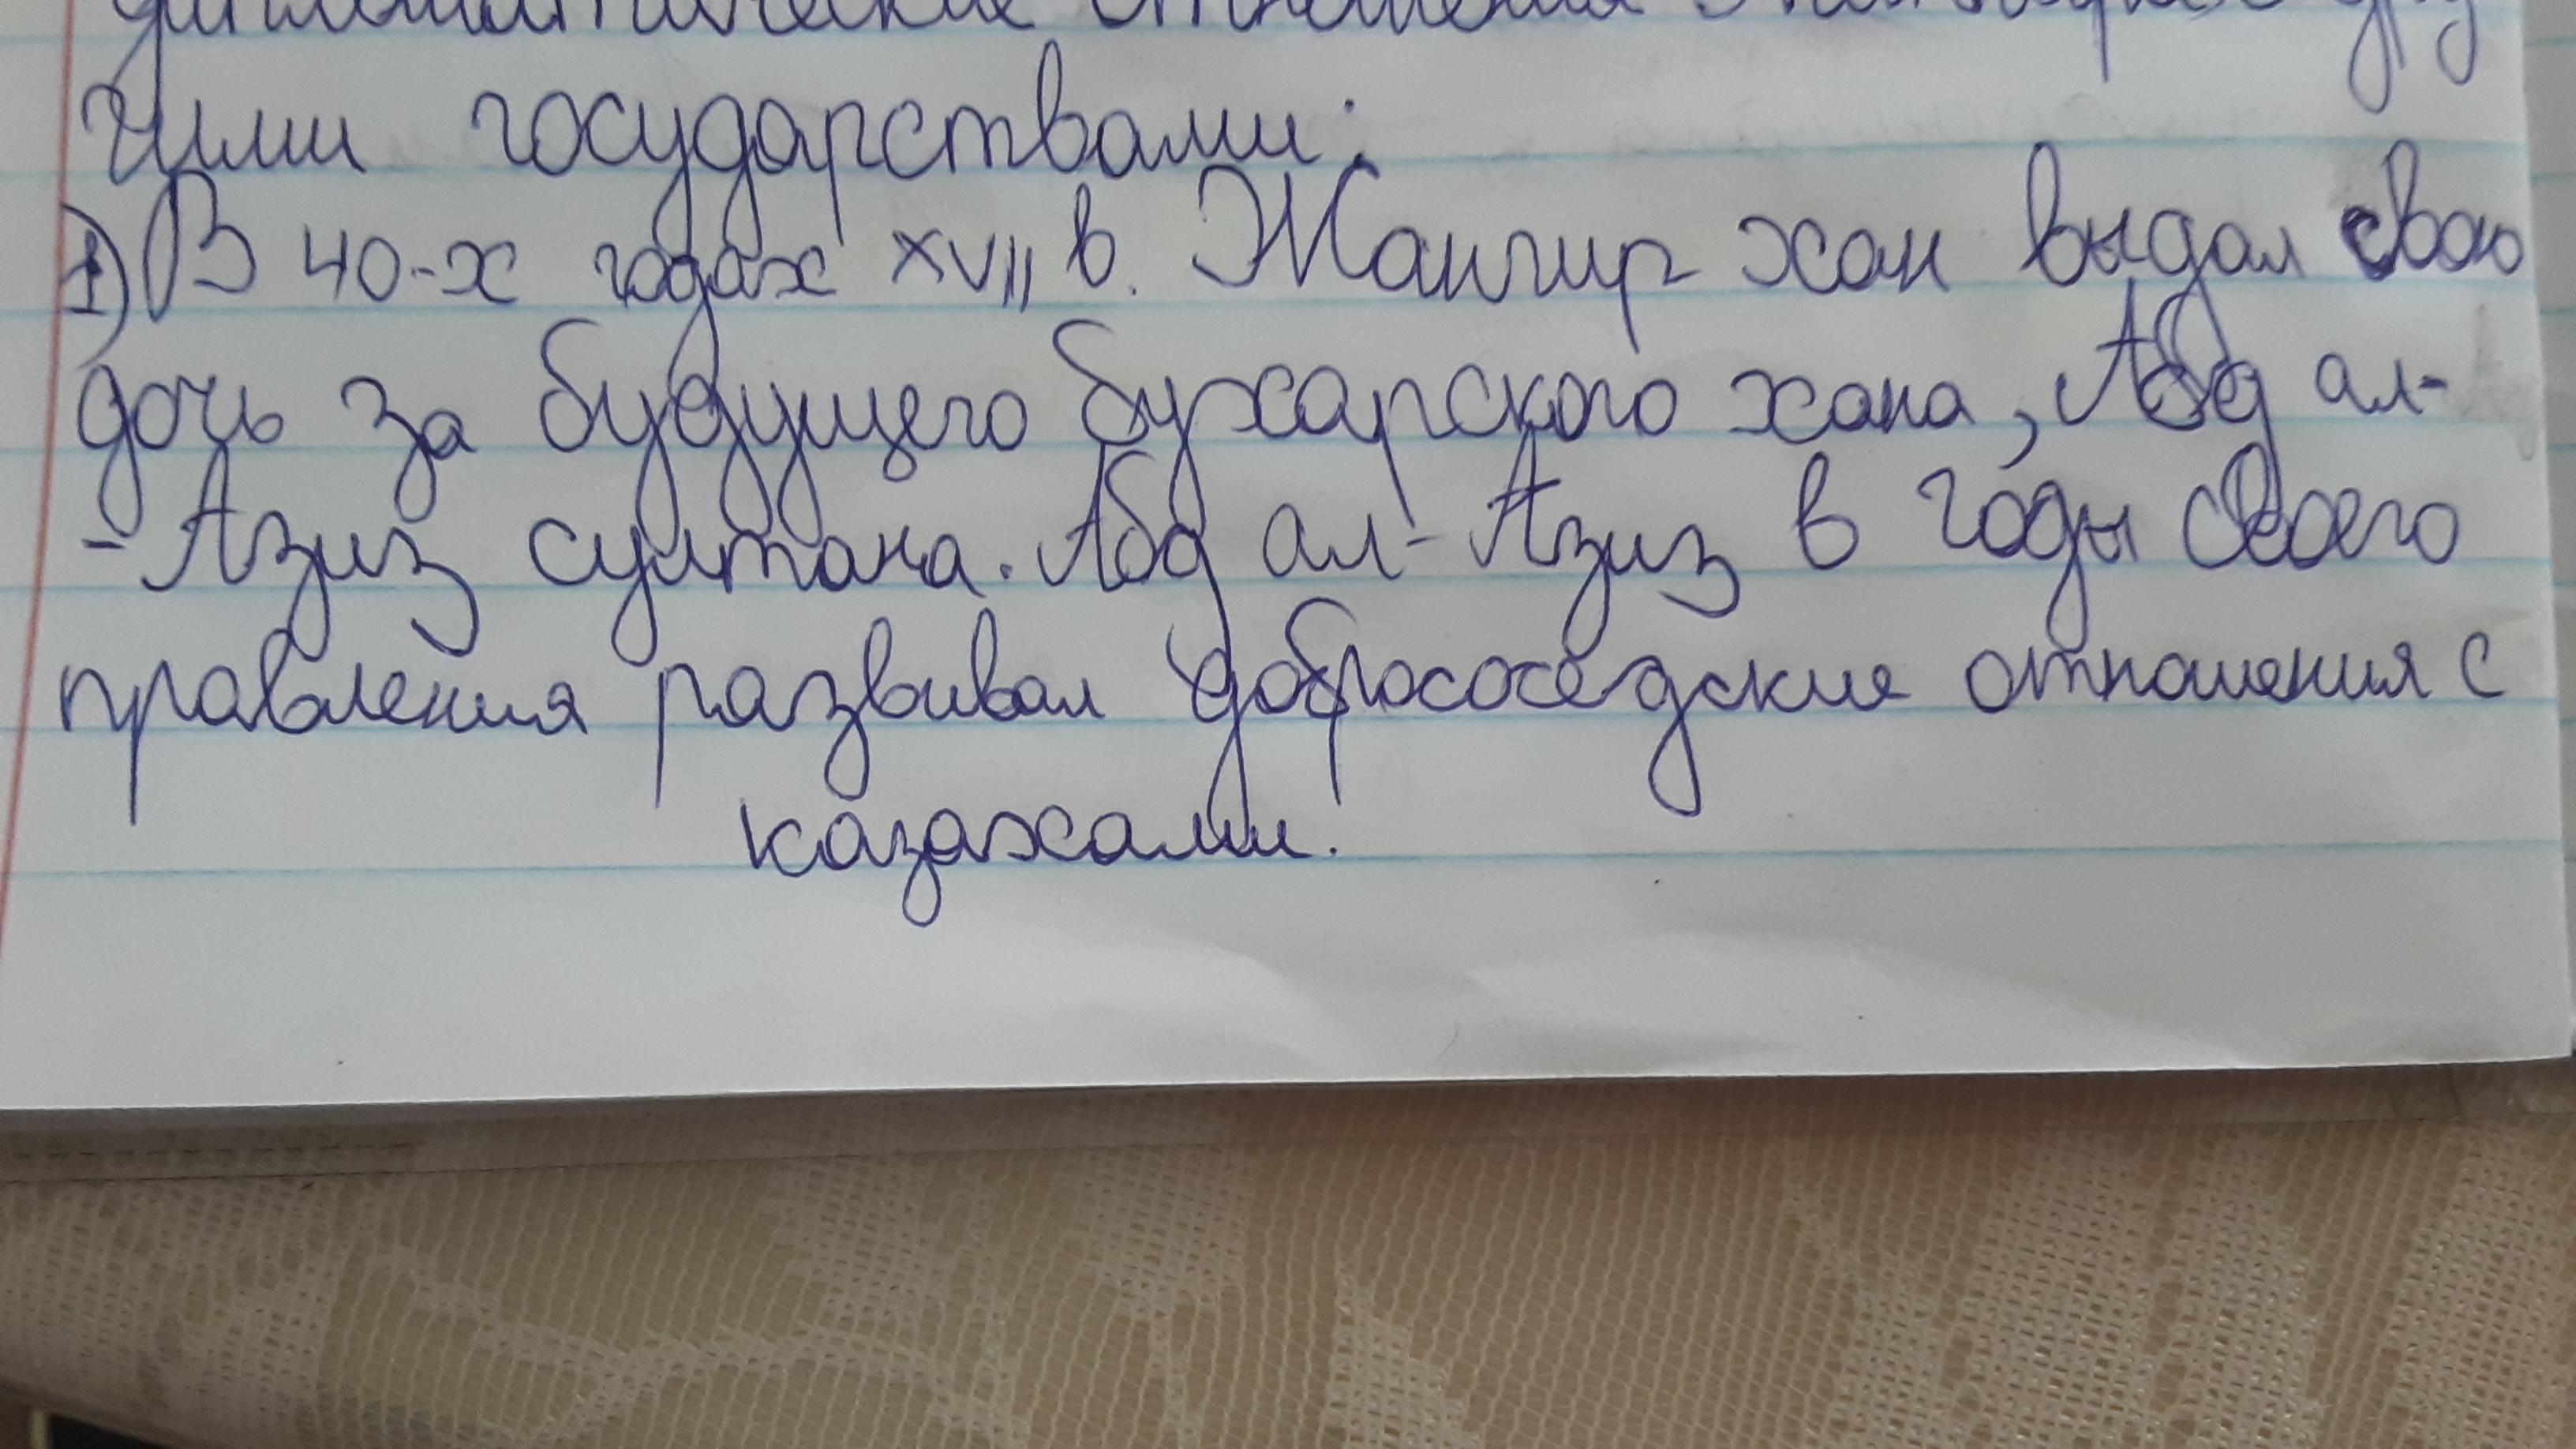 дипломатические отношения Жангира с дру
гими государствами:
1) В 40-х годах XVII в. Жангир хан выдал свою
дочь за будущего бухарского хана, Абд ал-
-Азиз султана. Абд ал-Азиз в годы своего
правления развивал добрососедские отношения с
казахами.